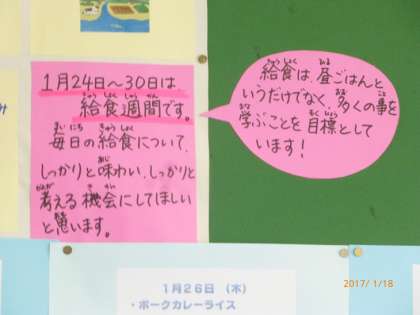 1月24日〜30日は
給食週間です。
毎日の給食について、
しっかりと味わい、しっかりと
考える機会にしてほしい
と思います。
給食は、昼ごはんと
いうだけでなく、多くの事を
学ぶことを目標として
います！
1月26日 （木）
・ポークカレーライス
2017/ 1/18